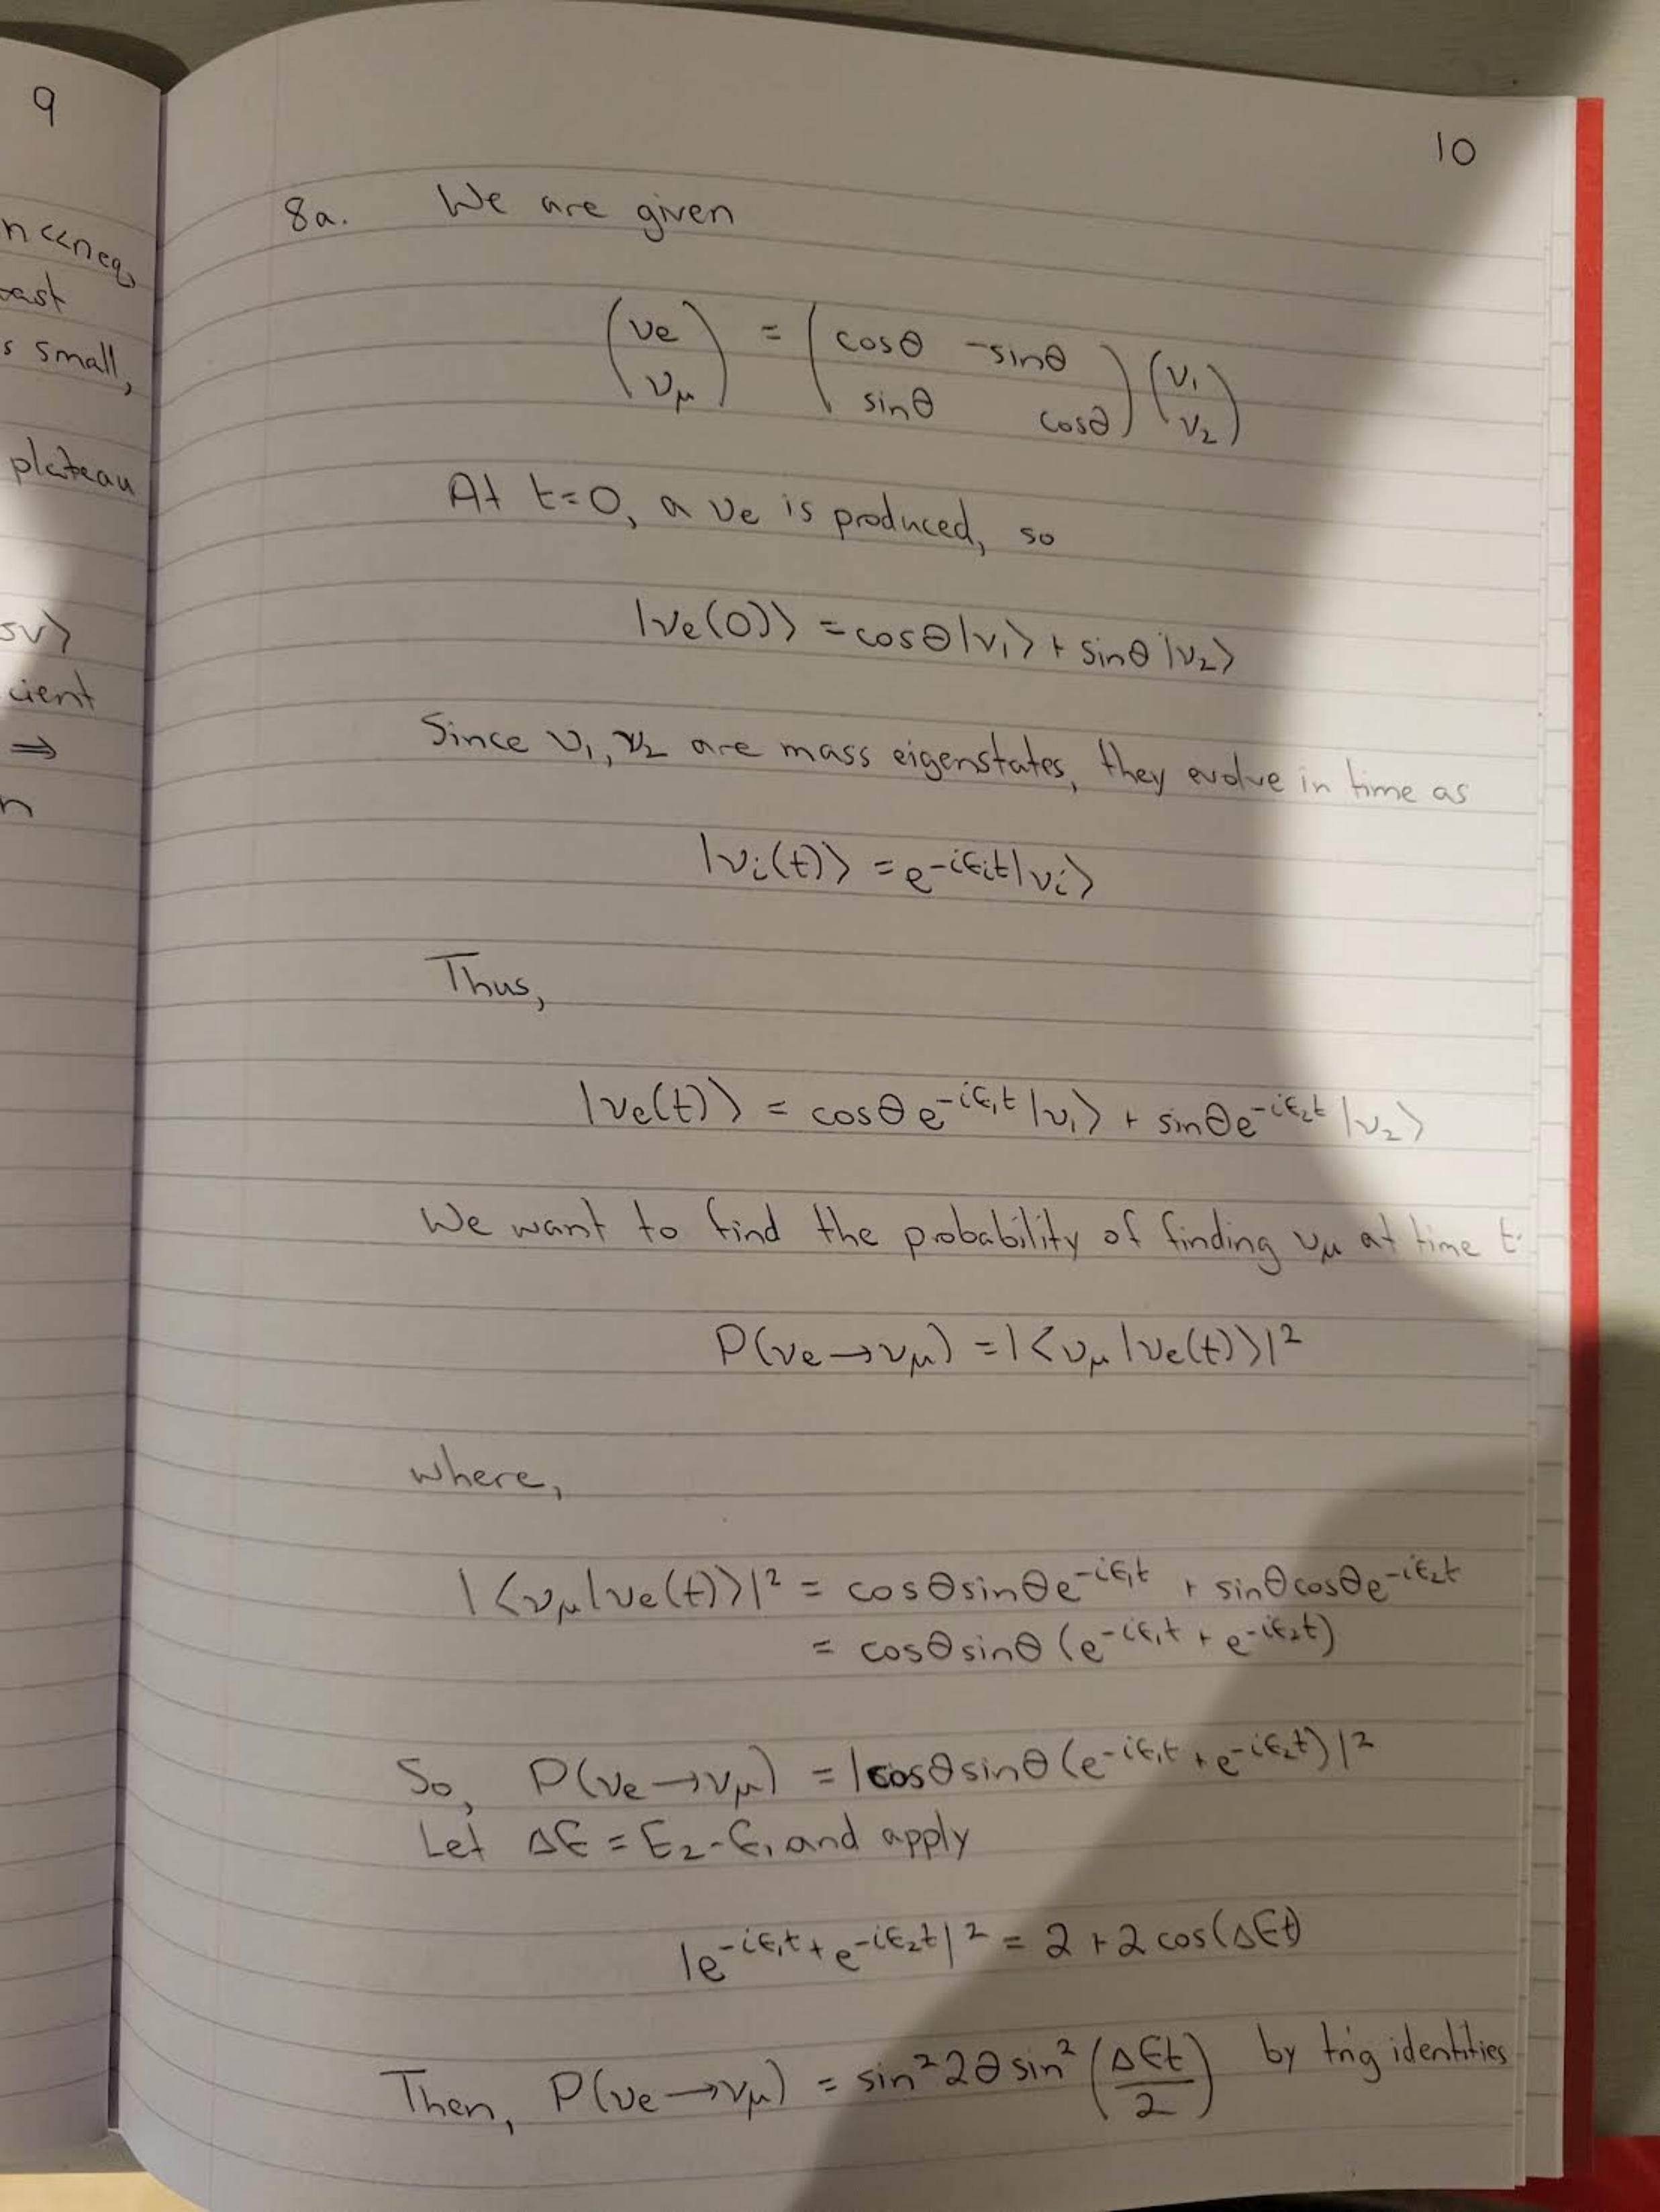 9
n<<neq,
east
s small,
plateau
σv⟩
cient
⇒
n
10
8a. We are given
(νe
νμ) = (cosθ -sinθ
sinθ cosθ)(ν₁
ν₂)
At t=0, a νe is produced, so
|νe(0)⟩ = cosθ|ν₁⟩ + sinθ|ν₂⟩
Since ν₁, ν₂ are mass eigenstates, they evolve in time as
|νi(t)⟩ = e^-iEit|νi⟩
Thus,
|νe(t)⟩ = cosθe^-iE₁t|ν₁⟩ + sinθe^-iE₂t|ν₂⟩
We want to find the probability of finding νμ at time t:
P(νe→νμ) = |⟨νμ|νe(t)⟩|²
where,
|⟨νμ|νe(t)⟩|² = cosθsinθe^-iE₁t + sinθcosθe^-iE₂t
= cosθsinθ(e^-iE₁t + e^-iE₂t)
So, P(νe→νμ) = |cosθsinθ(e^-iE₁t + e^-iE₂t)|²
Let ΔE = E₂-E₁ and apply
|e^-iE₁t + e^-iE₂t|² = 2 + 2cos(ΔEt)
Then, P(νe→νμ) = sin²2θsin²(ΔEt/2) by trig identities